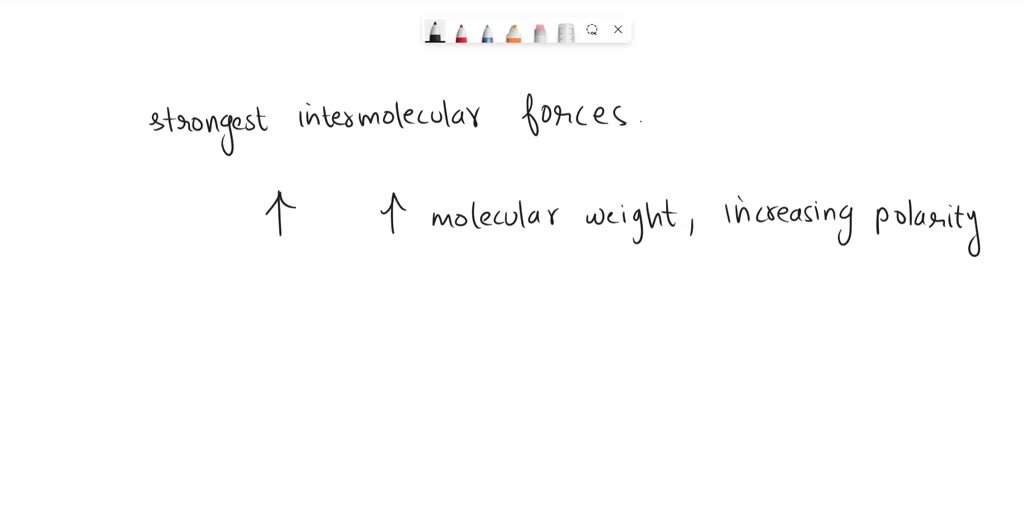 strongest intermolecular forces.
↑ ↑ molecular weight, increasing polarity